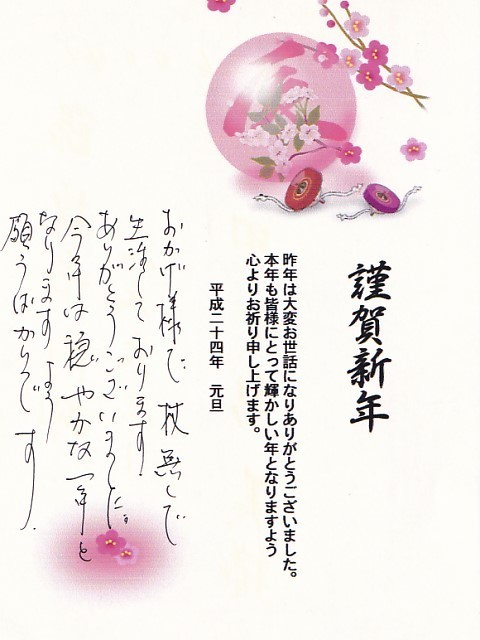 謹賀新年
昨年は大変お世話になりありがとうございました。
本年も皆様にとって輝かしい年となりますよう
心よりお祈り申し上げます。
平成二十四年 元旦
おかげ様で、杖無しで
生活して おります。
ありがとうございました。
今年は穏やかな一年と
なります よう
願うばかりです。